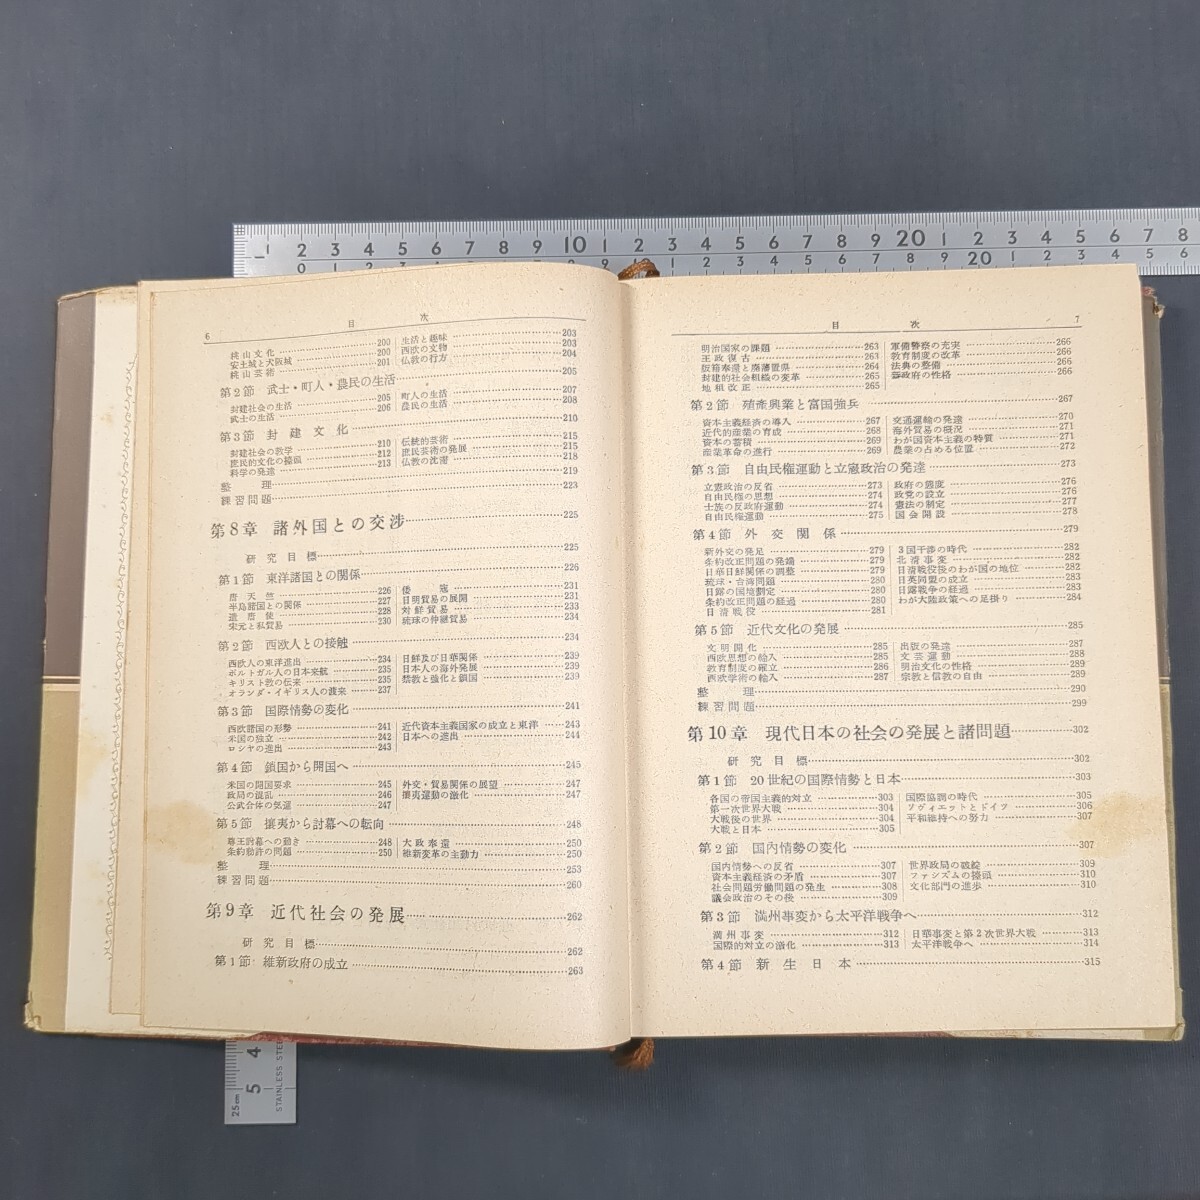 1 2 3 4 5 6 7 8 9 10 1 2 3 4 5 6 7 8 9 20 1 2 3 4 5 6 7 8
6
目 次
桃山文化 200
安土城と大阪城 200
桃山芸術 201
生活と趣味 203
西欧の文物 203
仏教の行方 204
第2節 武士・町人・農民の生活 205
封建社会の生活 205
武士の生活 206
町人の生活 207
農民の生活 208
第3節 封建文化 210
封建社会の教学 210
庶民的文化の擡頭 212
科学の発達 213
伝統的芸術 215
庶民芸術の発展 215
仏教の沈滞 218
整理 219
練習問題 223
第8章 諸外国との交渉 225
研究目標 225
第1節 東洋諸国との関係 226
唐天竺 226
半島諸国との関係 227
遣唐使 228
宋元と私貿易 230
倭寇 231
日明貿易の展開 231
対鮮貿易 233
琉球の仲継貿易 234
第2節 西欧人との接触 234
西欧人の東洋進出 234
ポルトガル人の日本来航 235
キリスト教の伝来 235
オランダ・イギリス人の渡来 237
日鮮及び日華関係 239
日本人の海外発展 239
禁教と強化と鎖国 239
第3節 国際情勢の変化 241
西欧諸国の形勢 241
米国の独立 242
ロシヤの進出 243
近代資本主義国家の成立と東洋 243
日本への進出 244
第4節 鎖国から開国へ 245
米国の開国要求 245
政局の混乱 246
公武合体の気運 247
外交・貿易関係の展望 247
攘夷運動の激化 247
第5節 攘夷から討幕への転向 248
尊王討幕への動き 248
条約勅許の問題 250
大政奉還 250
維新変革の主動力 250
整理 253
練習問題 260
第9章 近代社会の発展 262
研究目標 262
第1節 維新政府の成立 263
目 次
7
明治国家の課題 263
王政復古 263
版籍奉還と廃藩置県 264
封建的社会組織の変革 265
地租改正 265
軍備警察の充実 266
教育制度の改革 266
法典の整備 266
藩政府の性格 266
第2節 殖産興業と富国強兵 267
資本主義経済の導入 267
近代的産業の育成 268
資本の蓄積 269
産業革命の進行 269
交通運輸の発達 270
海外貿易の概況 271
わが国資本主義の特質 271
農業の占める位置 272
第3節 自由民権運動と立憲政治の発達 273
立憲政治の反省 273
自由民権の思想 274
士族の反政府運動 274
自由民権運動 275
政府の態度 276
政党の設立 276
憲法の制定 277
国会開設 278
第4節 外交関係 279
新外交の発足 279
条約改正問題の発議 279
日華日鮮関係の調整 279
琉球・台湾問題 280
日露の国境劃定 280
条約改正問題の経過 280
日清戦役 281
3国干渉の時代 282
北清事変 282
日清戦役後のわが国の地位 282
日英同盟の成立 283
日露戦争の経過 283
わが大陸政策への足掛り 284
第5節 近代文化の発展 285
文明開化 285
西欧思想の輸入 285
教育制度の確立 286
西欧学術の輸入 287
出版の発達 287
文芸運動 288
明治文化の性格 289
宗教と信教の自由 289
整理 290
練習問題 299
第10章 現代日本の社会の発展と諸問題 302
研究目標 302
第1節 20世紀の国際情勢と日本 303
各国の帝国主義的対立 303
第一次世界大戦 304
大戦後の世界 304
大戦と日本 305
国際協調の時代 305
ソヴィエットとドイツ 306
平和維持への努力 307
第2節 国内情勢の変化 307
国内情勢への反省 307
資本主義経済の矛盾 307
社会問題労働問題の発生 308
議会政治のその後 309
世界政局の破綻 309
ファシズムの擡頭 310
文化部門の進歩 310
第3節 満州事変から太平洋戦争へ 312
満州事変 312
国際的対立の激化 313
日華事変と第2次世界大戦 313
太平洋戦争へ 314
第4節 新生日本 315
25cm 5 4
STAINLESS STEE